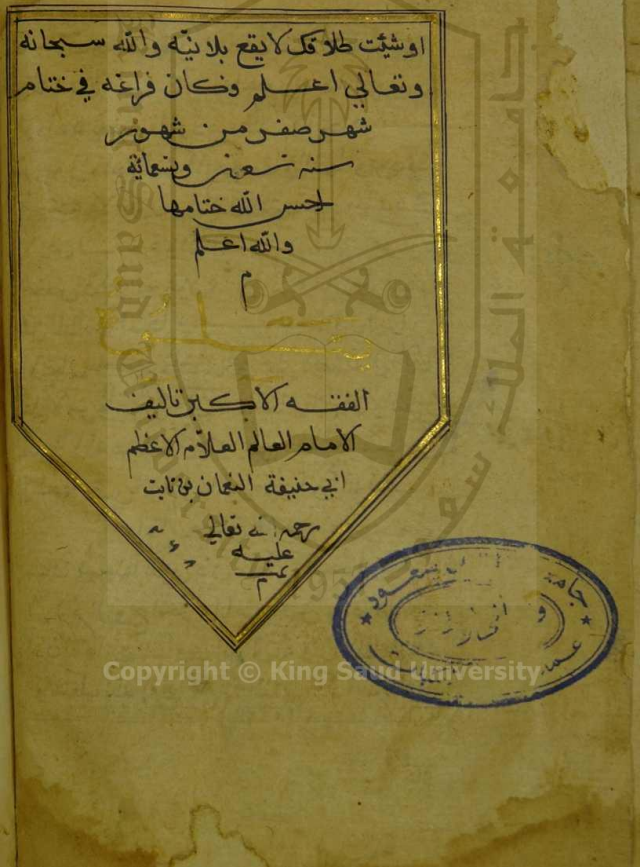 او شئت طلاقك لا يقع بلا نيّه والله سبحانه
وتعالي اعلم وكان فراغه في ختام
شهر صفر من شهور
سنه تسعين وتسعمائة
احسن الله ختامها
والله اعلم
م
الفقه الاكبر تاليف
الامام العالم العلّام الاعظم
ابي حنيفة النعمان بن ثابت
رحمة الله تعالي
عليه
تم
جامعة الملك سعود
King Saud University
1957
Copyright © King Saud University